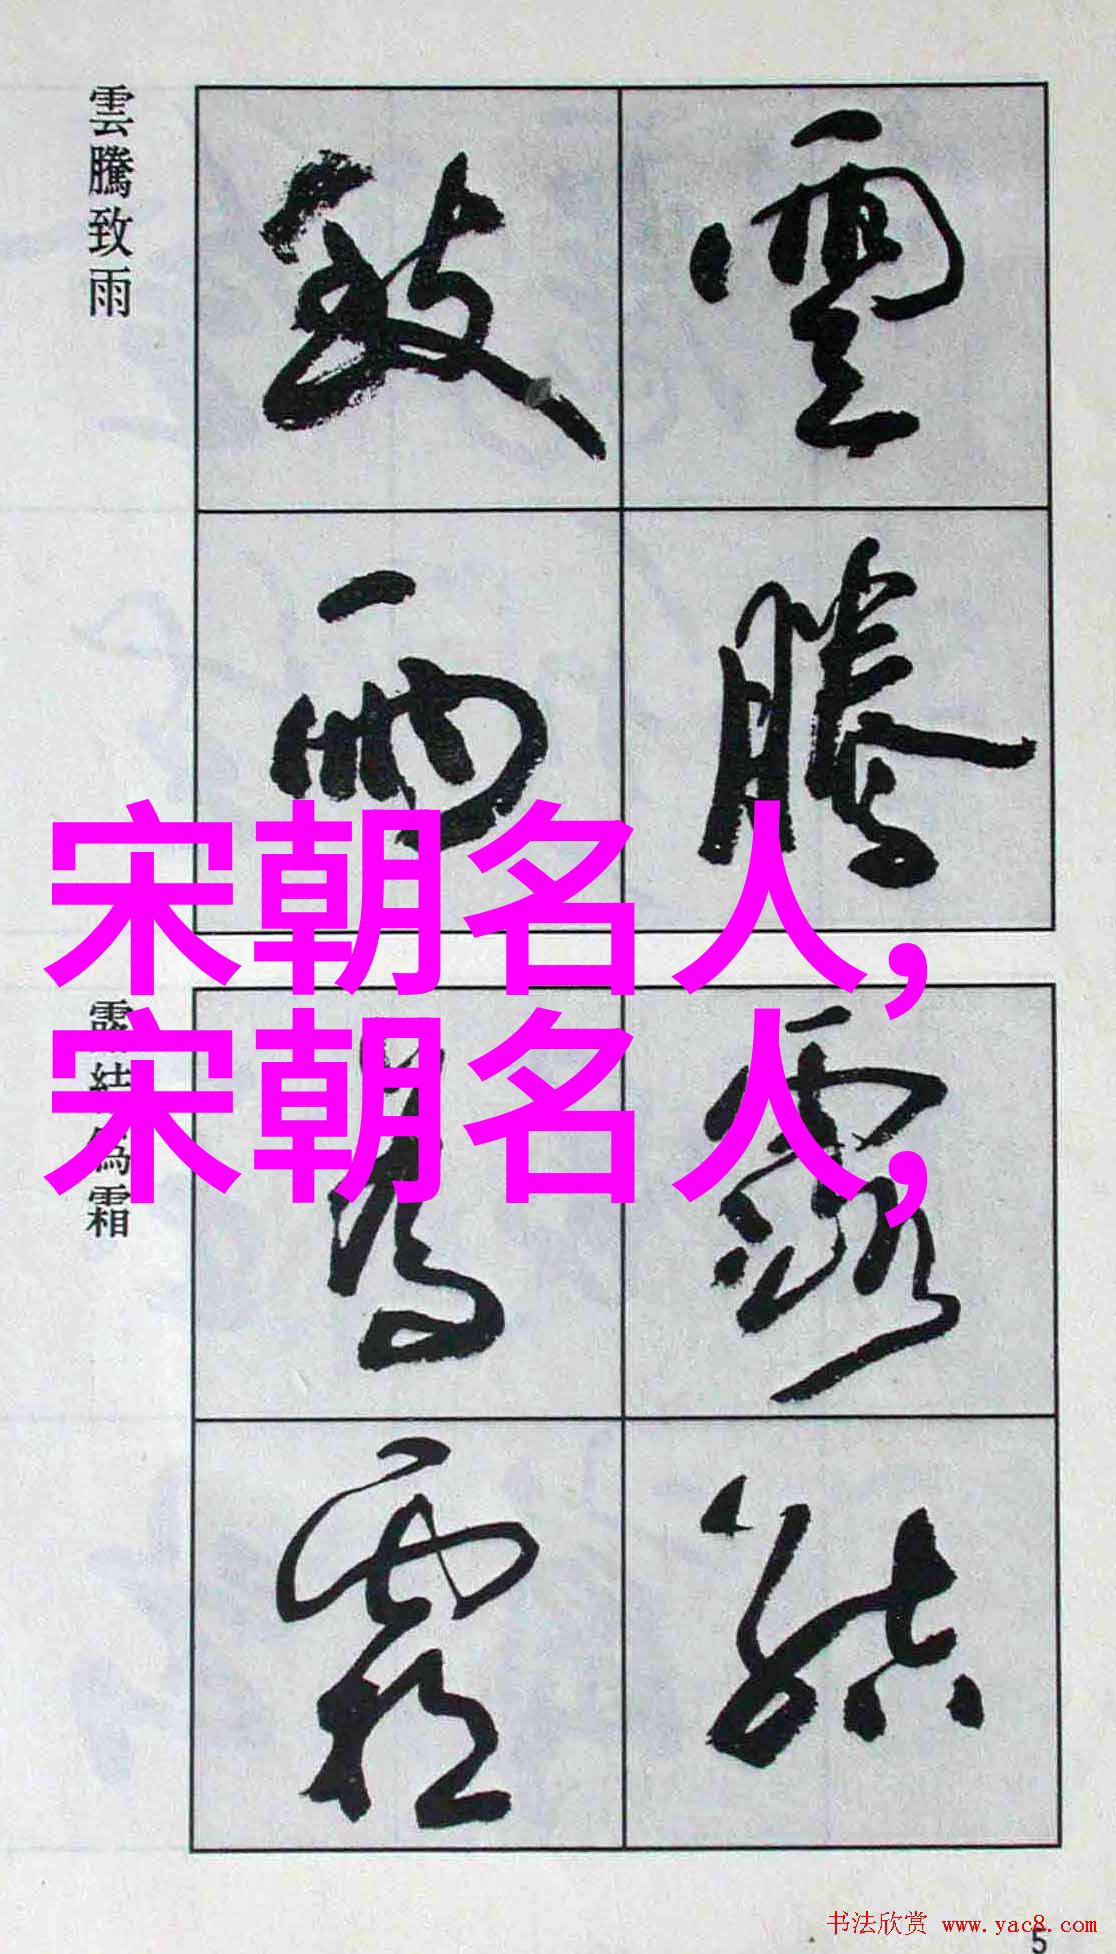 雲騰致雨
雲騰
致雨
宋朝名人,
宋朝名人,
露結為霜
露結
為霜
书法欣赏 www.yac8.com
5